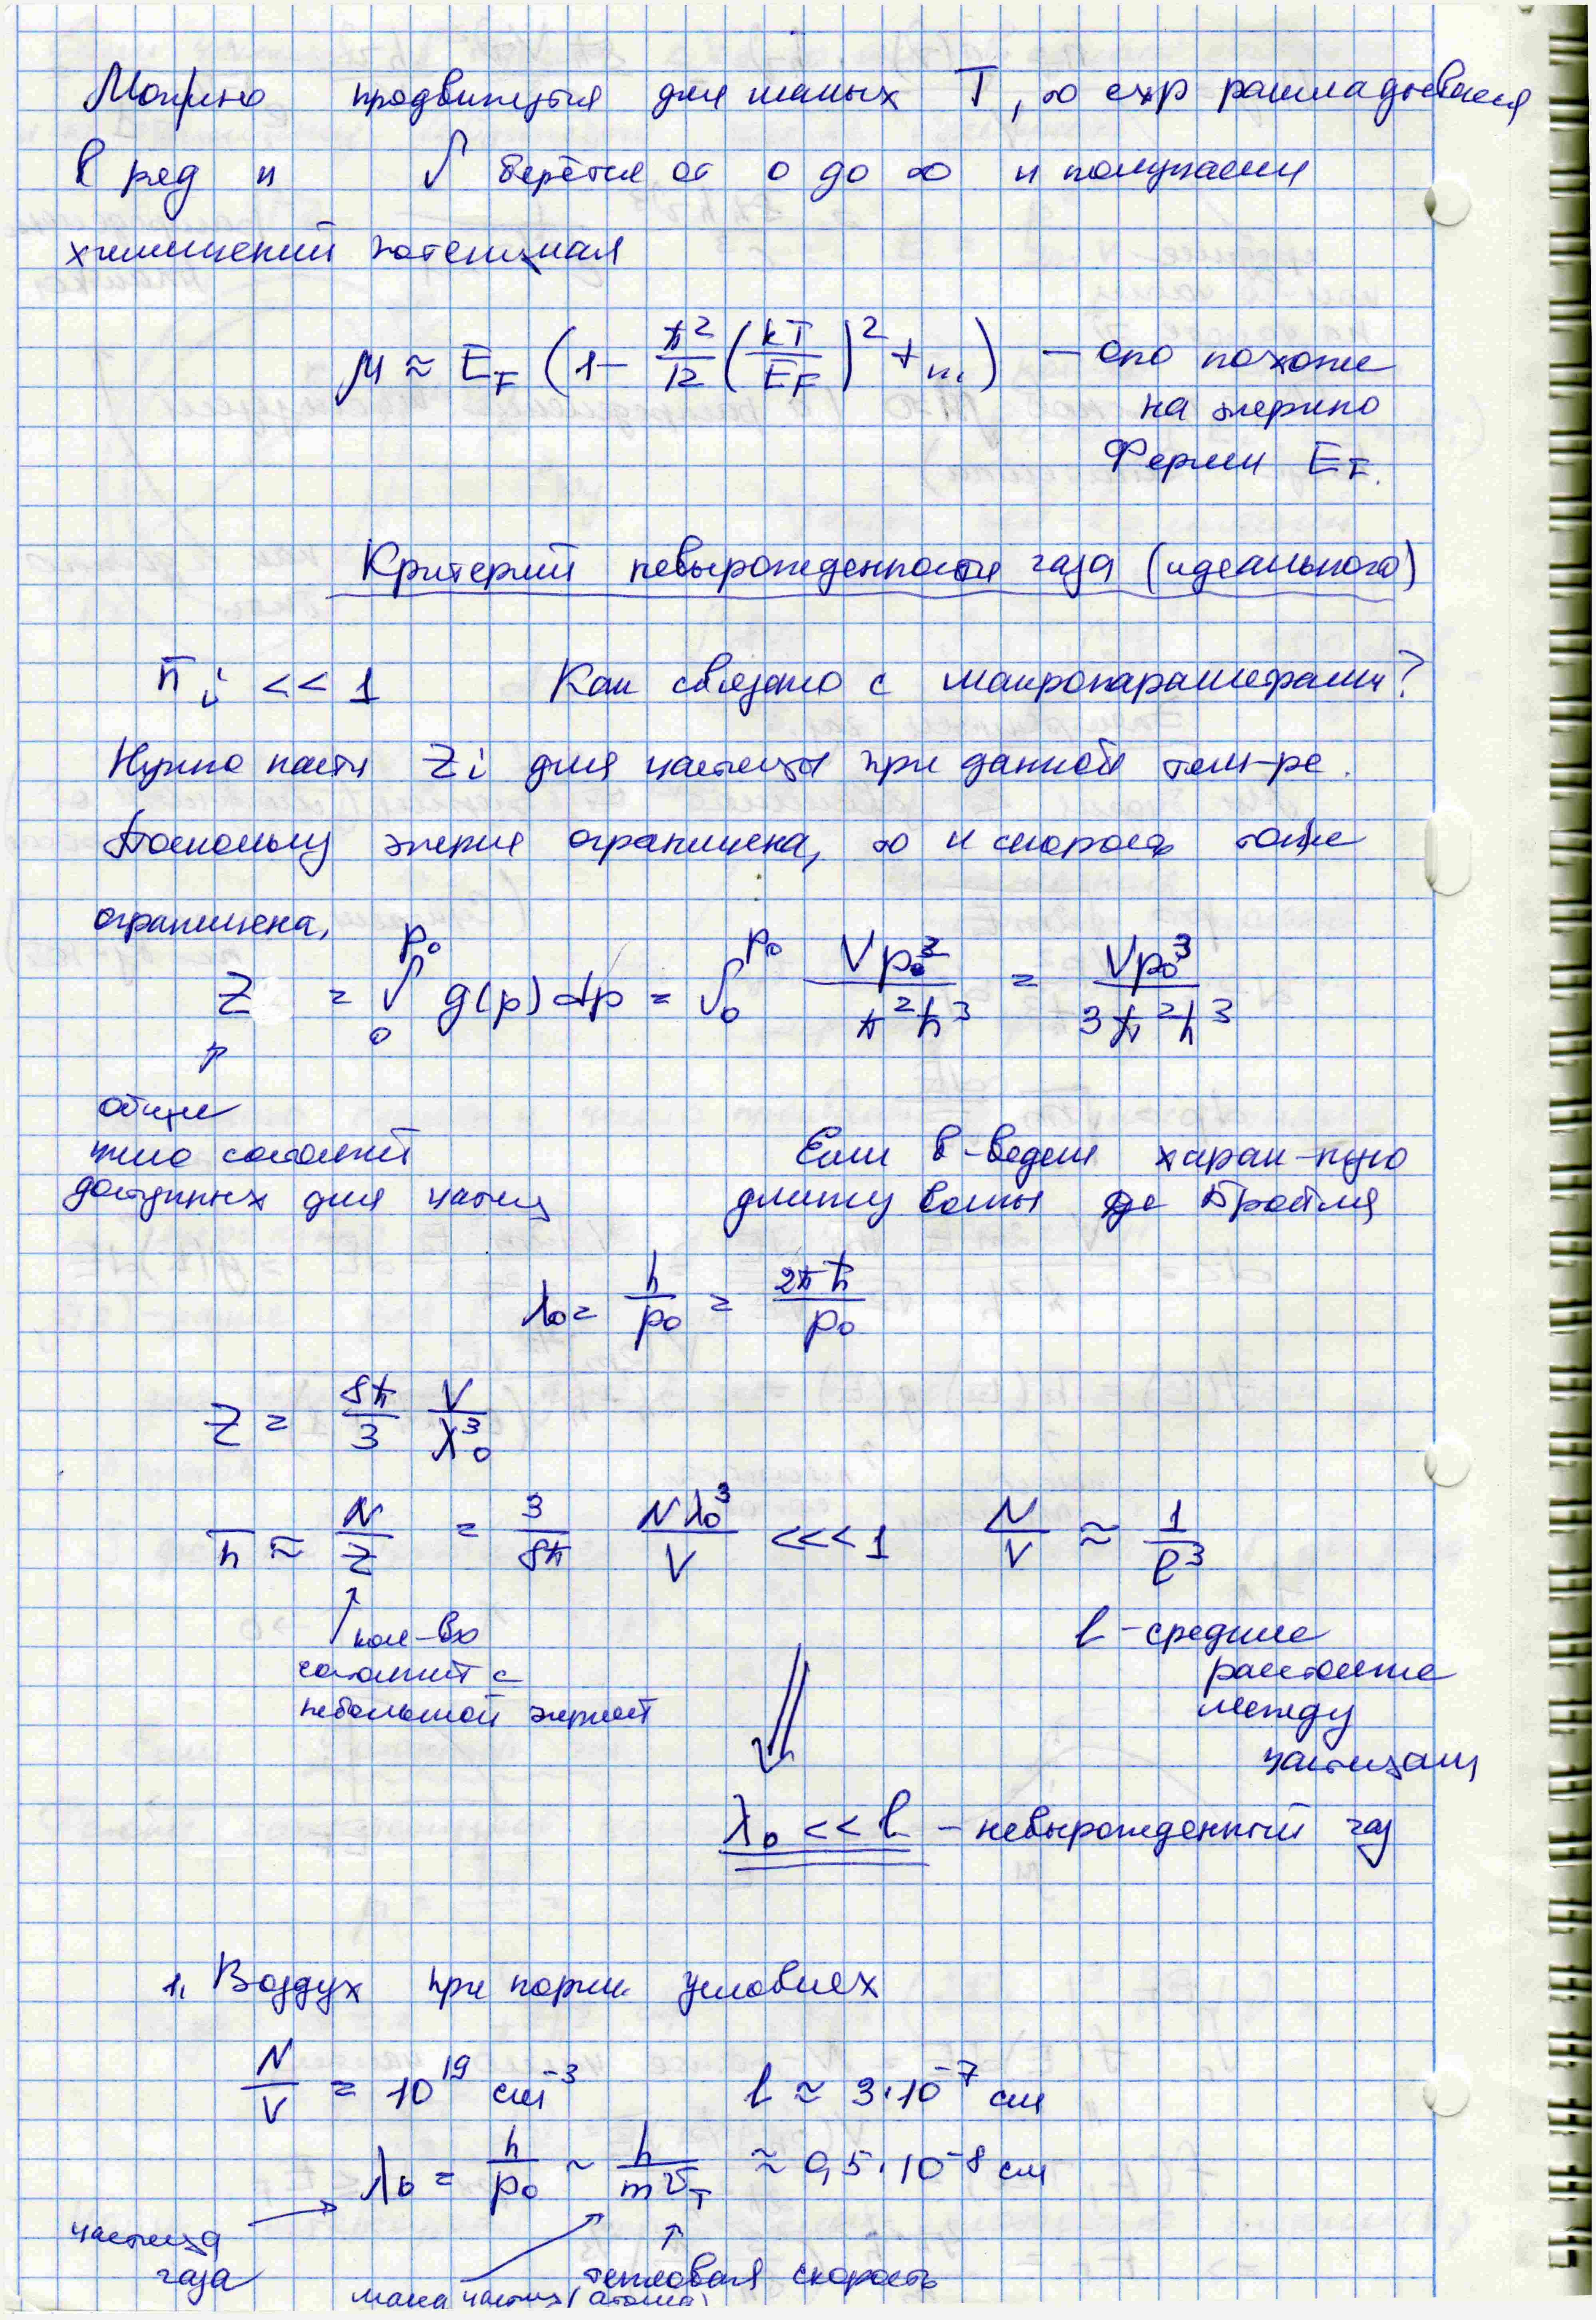 Можно продвинутся для малых T, то exp раскладывается
в ряд и ∫ берётся от 0 до ∞ и получаем
химический потенциал
μ ≈ E_F (1 - π²/12 (kT/E_F)² + ...) - оно похоже
на энергию
Ферми E_F.
Критерий невырожденности газа (идеального)
n̄_i << 1 Как связано с макропараметрами?
Нужно найти Z_i для частицы при данной темп-ре.
Поскольку энергия ограничена, то и скорость тоже
ограничена,
Z = ∫_0^{p_0} g(p) dp = ∫_0^{p_0} Vp_0²/π²ħ³ = Vp_0³/3π²ħ³
↑
общее
число состояний
доступных для частиц
Если в-ведем харак-ную
длину волны де Бройля
λ_0 = h/p_0 = 2πħ/p_0
Z = 8π/3 V/λ_0³
n̄ ≈ N/Z = 3/8π Nλ_0³/V <<< 1 N/V ≈ 1/l³
кол-во
состояний с
небольшой энергией
l - среднее
расстояние
между
частицами
λ_0 << l - невырожденный газ
1. Воздух при норм. условиях
N/V = 10^19 см^-3 l ≈ 3·10^-7 см
λ_0 = h/p_0 ~ h/mv_T ≈ 0,5·10^-8 см
частица
газа
тепловая скорость
масса частиц (атома)